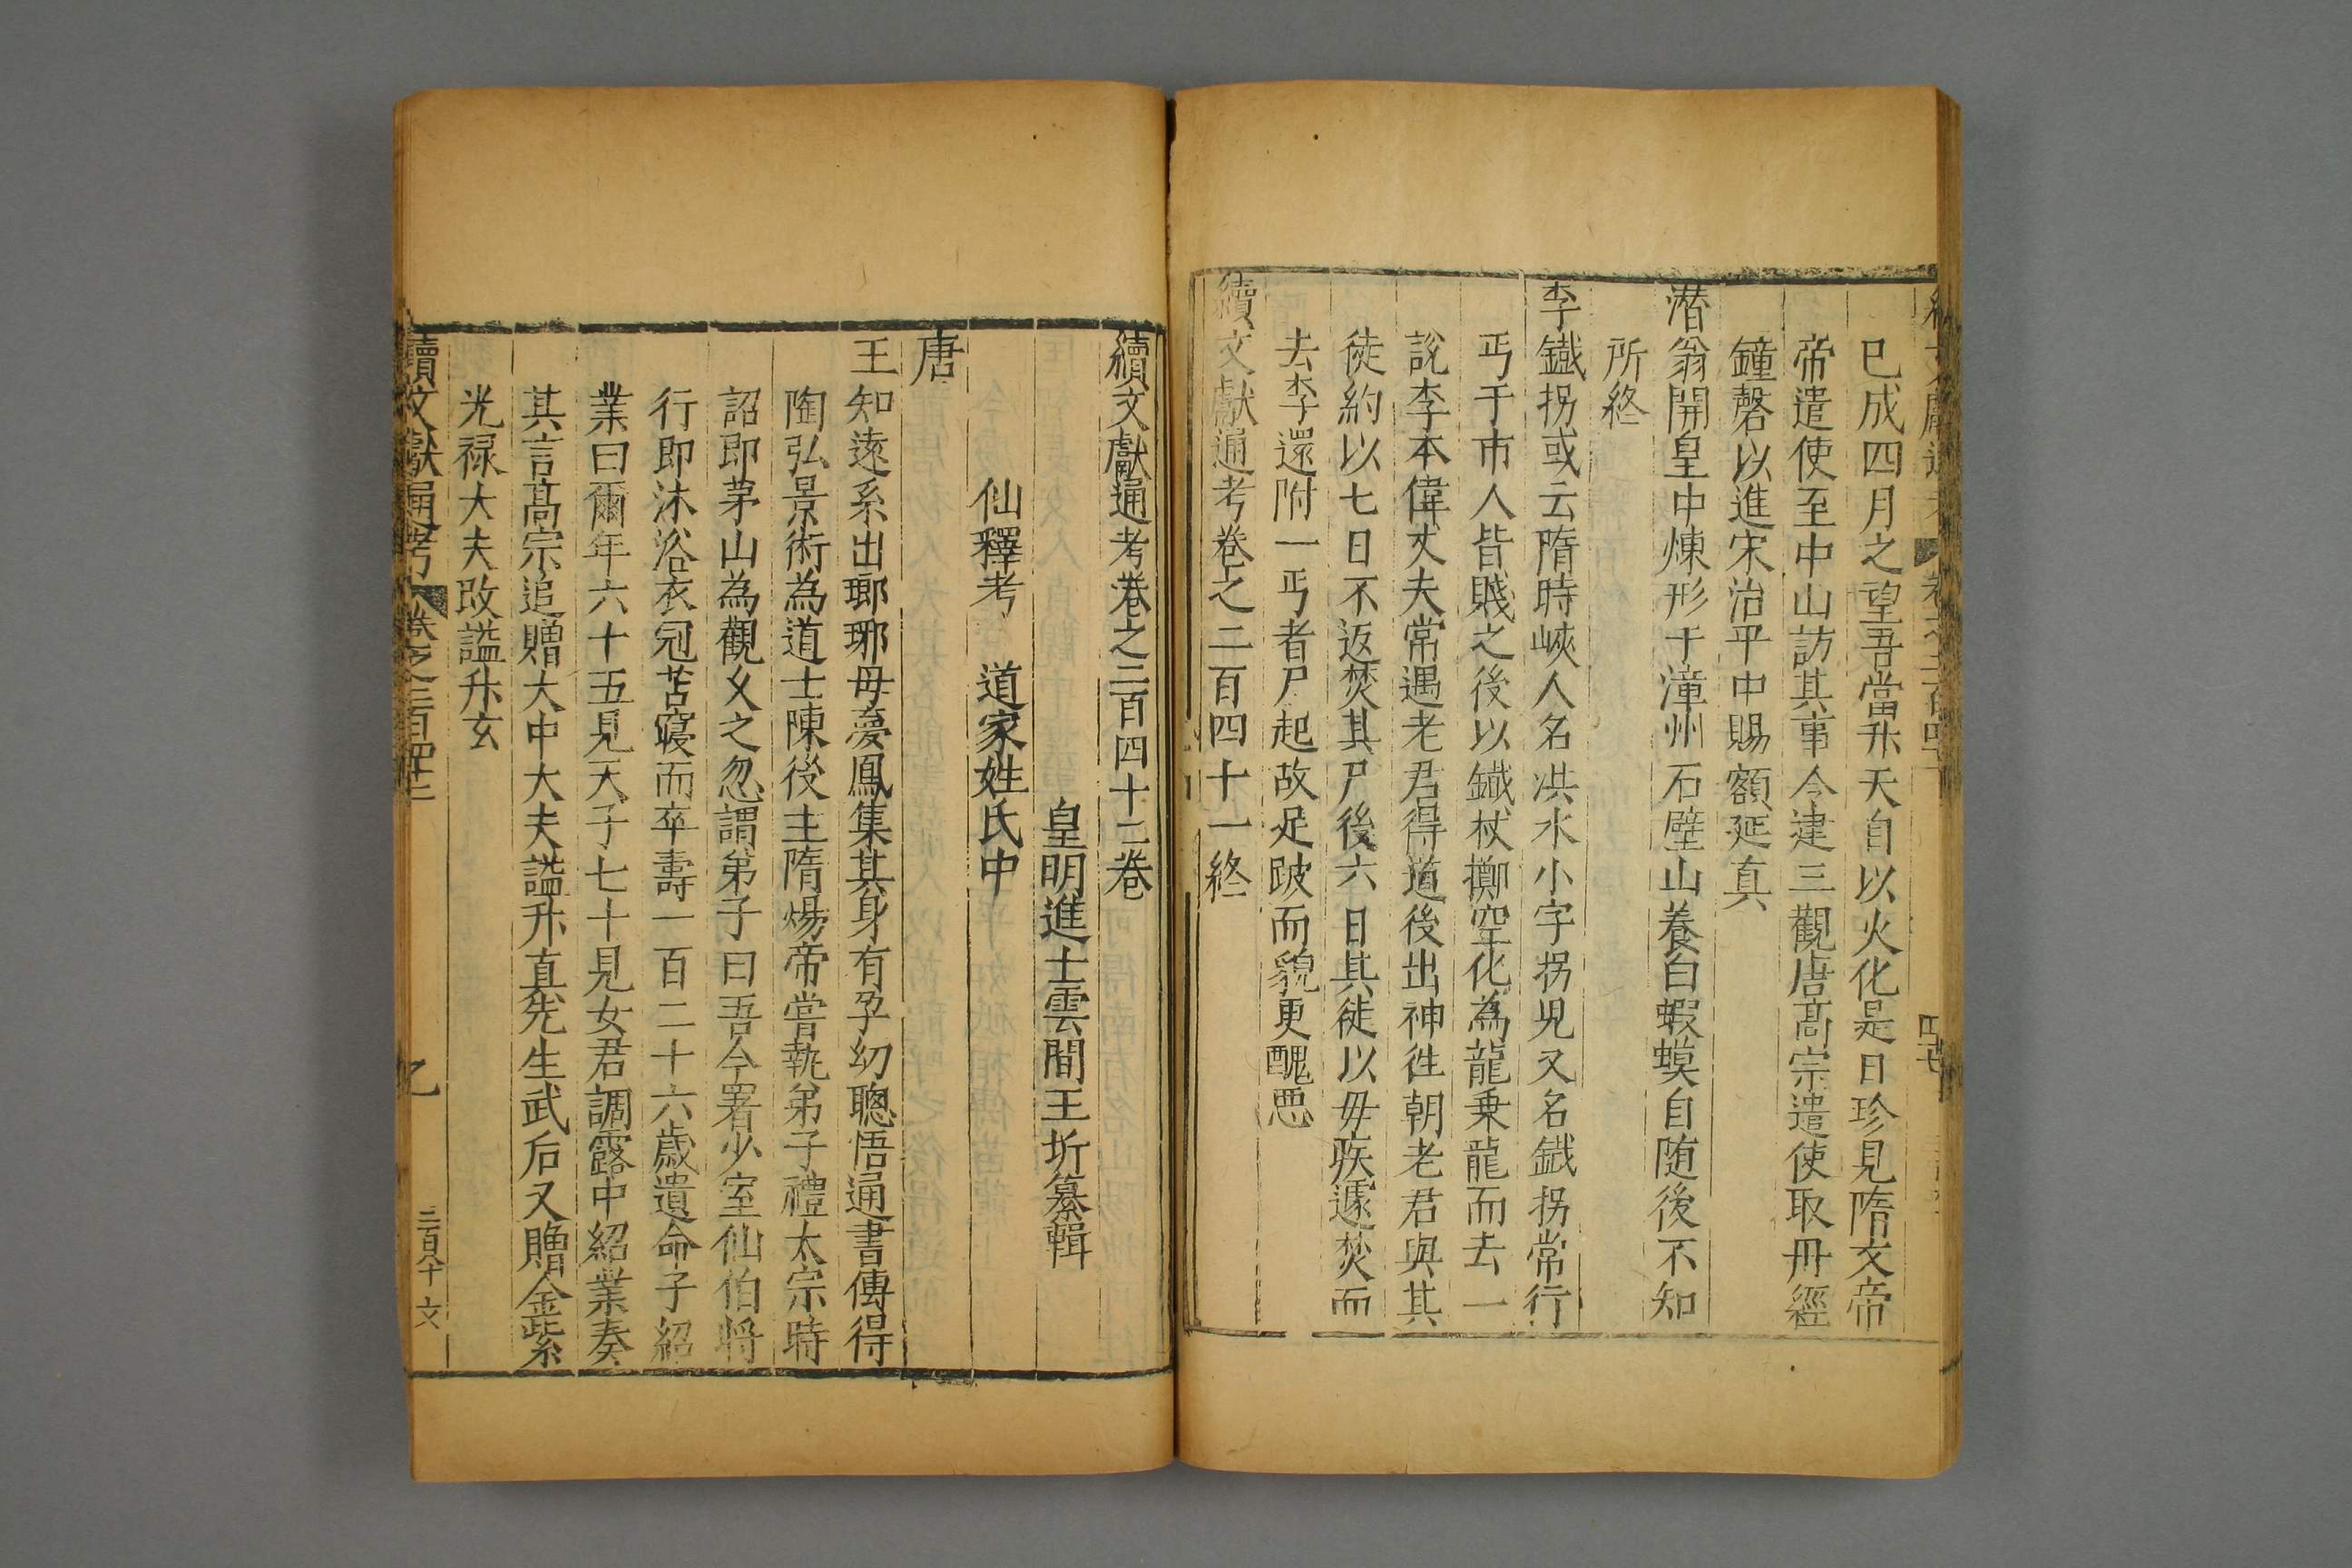 已成四月之望吾當升天自以火化是日珍見隋文帝
帝遣使至中山訪其事今建三觀唐髙宗遣使取丹經
鐘磬以進宋治平中賜額延真
潛翁開皇中煉形于潼州石壁山養白蝦蟆自随後不知
所終
李鐵拐或云隋時峽人名洪水小字拐児又名鐵拐常行
丐于市人皆賤之後以鐵杖擲空化為龍乗龍而去一
說李本偉丈夫常遇老君得道後出神徃朝老君與其
徒約以七日不返焚其尸後六日其徒以毋疾遽焚而
去李還附一丐者尸起故足跛而貌更醜悪
續文獻通考卷之二百四十一終
續文獻通考卷之二百四十二卷
皇明進士雲間王圻纂輯
仙釋考 道家姓氏中
唐
王知逺系出瑯琊母夢鳳集其身有孕幼聰悟通書傳得
陶弘景術為道士陳後主隋煬帝嘗執弟子禮太宗時
詔即茅山為觀乆之忽謂弟子曰吾今署少室仙伯将
行即沐浴衣冠苫寢而卒壽一百二十六歳遺命子紹
業曰爾年六十五見天子七十見女君調露中紹業奏
其言髙宗追贈大中大夫謚升真先生武后又贈金紫
光禄大夫改謚升玄
續文獻通考 卷之二百四十二
乙
二百八十 文